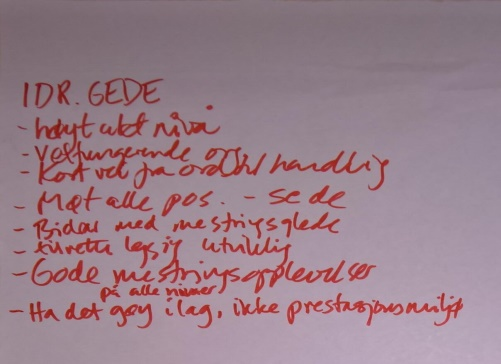 IDR. GEDE
- høyt akt nivå
- Velfungerende org
- Kort vei fra ord til handling
- Møt alle pos. - se de
- Bidra med mestringsglede
- tilrettelegging utvikling
- Gode mestringsopplevelser
på alle nivåer
- Ha det gøy i lag, ikke prestasjonsmiljø